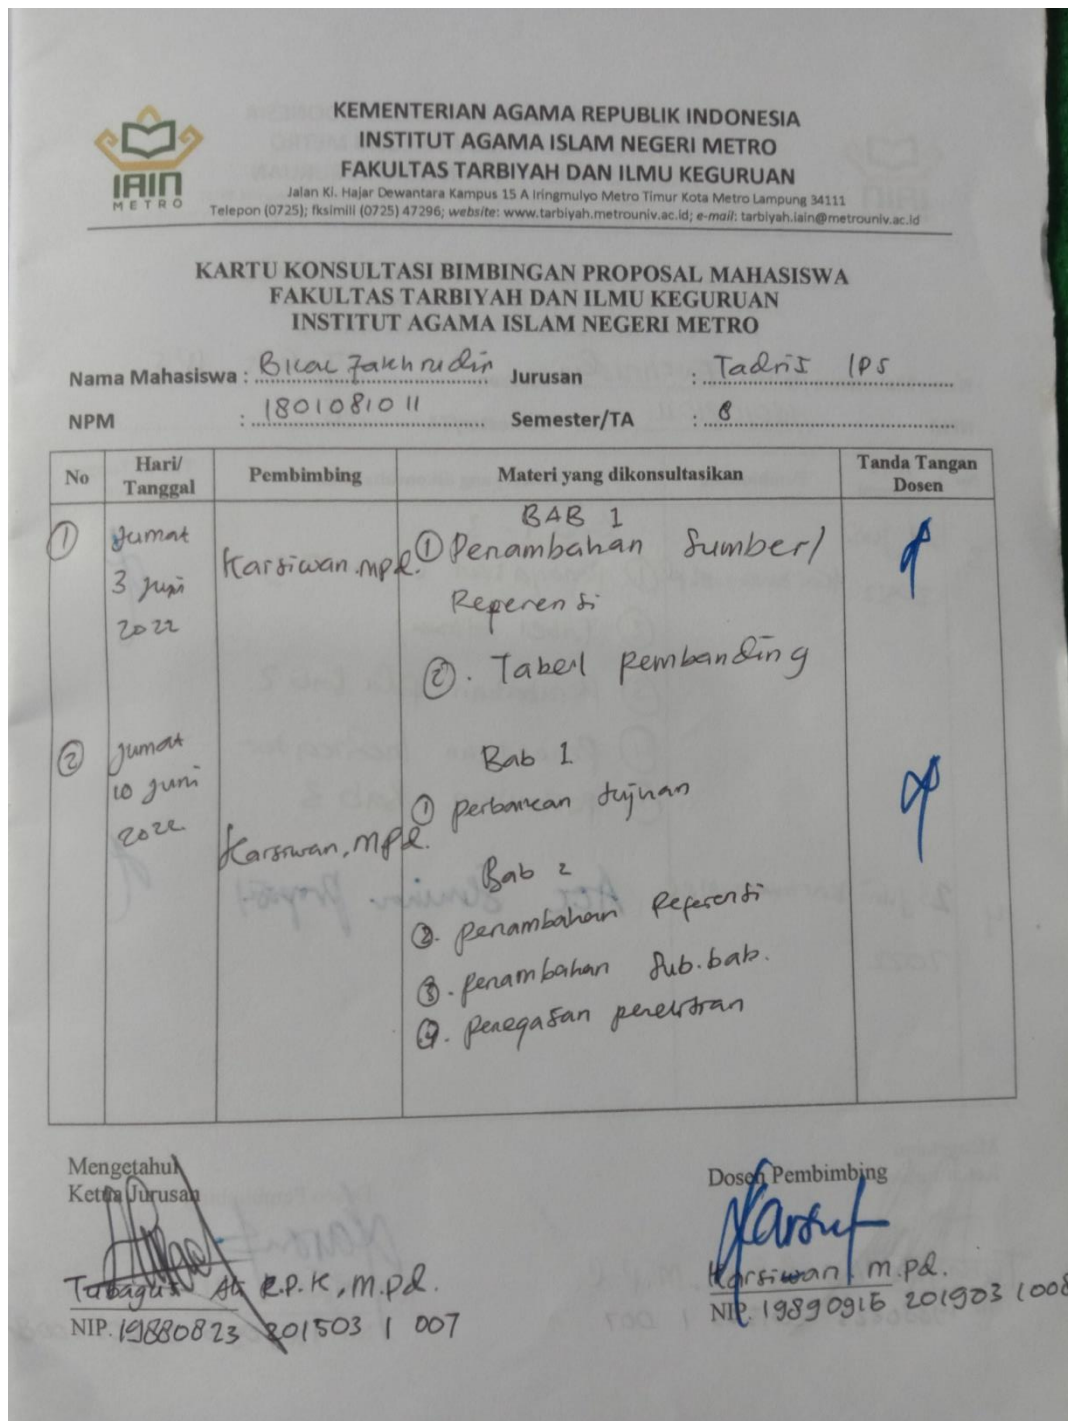 KEMENTERIAN AGAMA REPUBLIK INDONESIA
INSTITUT AGAMA ISLAM NEGERI METRO
FAKULTAS TARBIYAH DAN ILMU KEGURUAN
Jalan Ki. Hajar Dewantara Kampus 15 A Iringmulyo Metro Timur Kota Metro Lampung 34111
Telepon (0725); fksimili (0725) 47296; website: www.tarbiyah.metrouniv.ac.id; e-mail: tarbiyah.iain@metrouniv.ac.id
IAIN
METRO
KARTU KONSULTASI BIMBINGAN PROPOSAL MAHASISWA
FAKULTAS TARBIYAH DAN ILMU KEGURUAN
INSTITUT AGAMA ISLAM NEGERI METRO
Nama Mahasiswa : Zakhrudin Jurusan : Tadris IPS
NPM : 1801081011 Semester/TA : 8
No Hari/ Tanggal Pembimbing Materi yang dikonsultasikan Tanda Tangan Dosen
BAB 1
1 Jumat 3 Juni 2022 Karsiwan.Mpd. ① Penambahan Sumber/
Reperensi
②. Tabel Pembanding
2 Jumat 10 Juni 2022 Karsiwan, Mpd.
Bab 1
① perbaikan tujuan
Bab 2
②. penambahan Referensi
③. penambahan Sub.bab.
④. penegasan penelitian
Mengetahui
Ketua Jurusan
Tubagus Ali R.P.K, M.Pd.
NIP. 19880823 201503 1 007
Dosen Pembimbing
Karsiwan. M.Pd.
NIP. 19890916 201903 1008